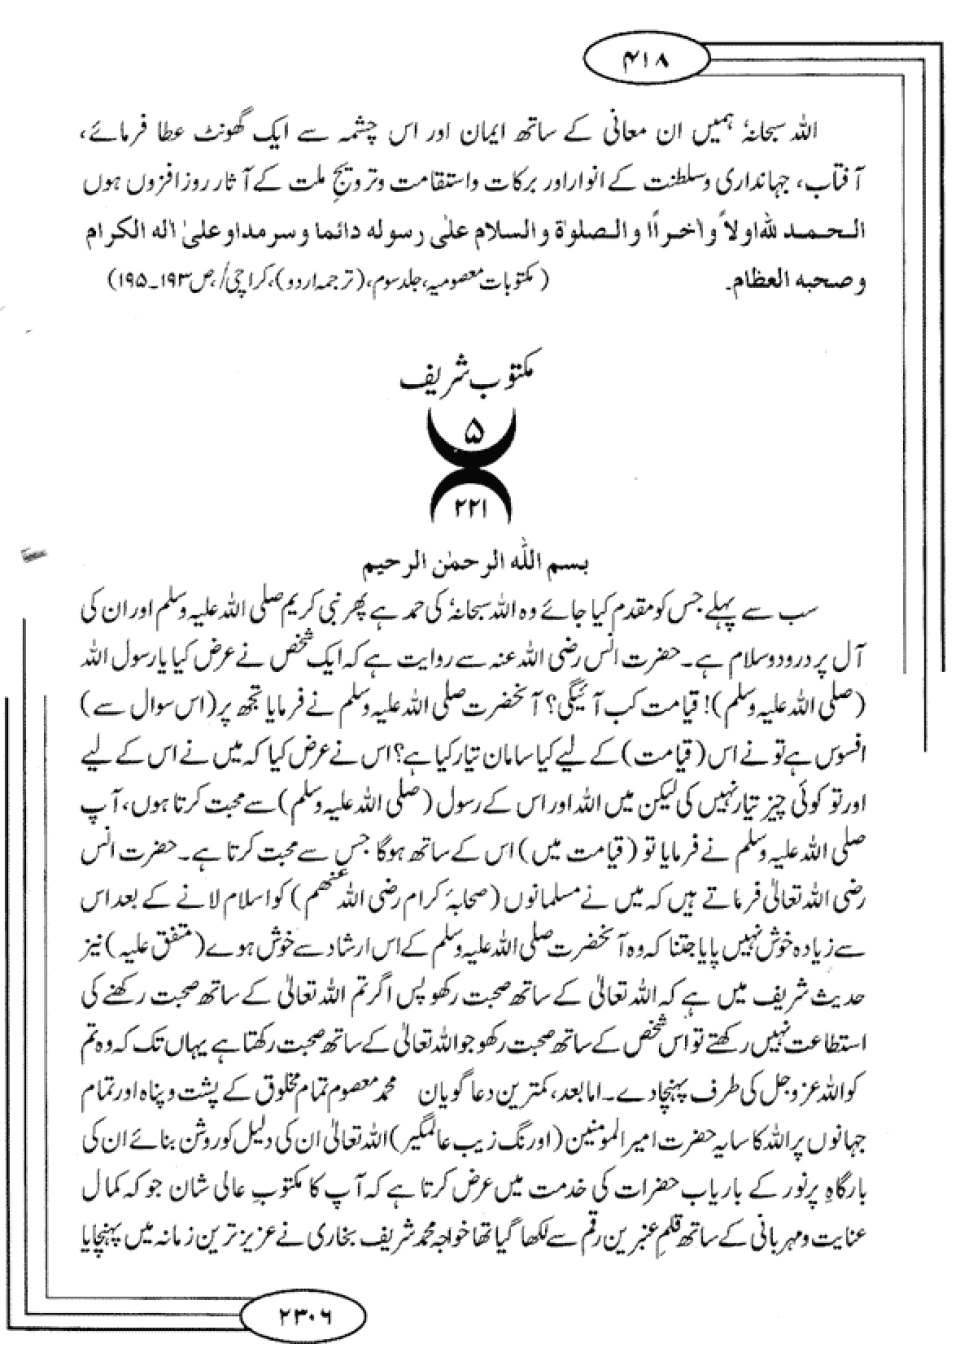 ۴۱۸
اللہ سبحانہٗ ہمیں ان معانی کے ساتھ ایمان اور اس چشمہ سے ایک گھونٹ عطا فرمائے،
آفتاب، جہانداری وسلطنت کے انوار اور برکات واستقامت وترویجِ ملت کے آثار روز افزوں ہوں
الحمد للّٰہ اولاً واٰخراً والصلوٰۃ والسلام علٰی رسولہ دائما وسرمدا وعلیٰ اٰلہ الکرام
وصحبہ العظام۔ (مکتوبات معصومیہ، جلد سوم، (ترجمہ اردو)، کراچی/،ص۱۹۳۔۱۹۵)
مکتوب شریف
۵
۲۲۱
بسم اللّٰہ الرحمٰن الرحیم
سب سے پہلے جس کو مقدم کیا جائے وہ اللہ سبحانہٗ کی حمد ہے پھر نبی کریم صلی اللہ علیہ وسلم اور ان کی
آل پر درود وسلام ہے۔ حضرت انس رضی اللہ عنہ سے روایت ہے کہ ایک شخص نے عرض کیا یا رسول اللہ
(صلی اللہ علیہ وسلم)! قیامت کب آئیگی؟ آنحضرت صلی اللہ علیہ وسلم نے فرمایا تجھ پر (اس سوال سے)
افسوس ہے تو نے اس (قیامت) کے لیے کیا سامان تیار کیا ہے؟ اس نے عرض کیا کہ میں نے اس کے لیے
اور تو کوئی چیز تیار نہیں کی لیکن میں اللہ اور اس کے رسول (صلی اللہ علیہ وسلم) سے محبت کرتا ہوں، آپ
صلی اللہ علیہ وسلم نے فرمایا تو (قیامت میں) اس کے ساتھ ہوگا جس سے محبت کرتا ہے۔ حضرت انس
رضی اللہ تعالیٰ فرماتے ہیں کہ میں نے مسلمانوں (صحابۂ کرام رضی اللہ عنھم) کو اسلام لانے کے بعد اس
سے زیادہ خوش نہیں پایا جتنا کہ وہ آنحضرت صلی اللہ علیہ وسلم کے اس ارشاد سے خوش ہوے (متفق علیہ) نیز
حدیث شریف میں ہے کہ اللہ تعالیٰ کے ساتھ صحبت رکھو پس اگر تم اللہ تعالیٰ کے ساتھ صحبت رکھنے کی
استطاعت نہیں رکھتے تو اس شخص کے ساتھ صحبت رکھو جو اللہ تعالیٰ کے ساتھ صحبت رکھتا ہے یہاں تک کہ وہ تم
کو اللہ عزوجل کی طرف پہنچا دے۔ امابعد، کمترین دعا گویان محمد معصوم تمام مخلوق کے پشت و پناہ اور تمام
جہانوں پر اللہ کا سایہ حضرت امیر المومنین (اورنگ زیب عالمگیر) اللہ تعالیٰ ان کی دلیل کو روشن بنائے ان کی
بارگاہِ پر نور کے باریاب حضرات کی خدمت میں عرض کرتا ہے کہ آپ کا مکتوبِ عالی شان جو کہ کمال
عنایت و مہربانی کے ساتھ قلمِ عنبرین رقم سے لکھا گیا تھا خواجہ محمد شریف بخاری نے عزیز ترین زمانہ میں پہنچایا
۲۳۰۶